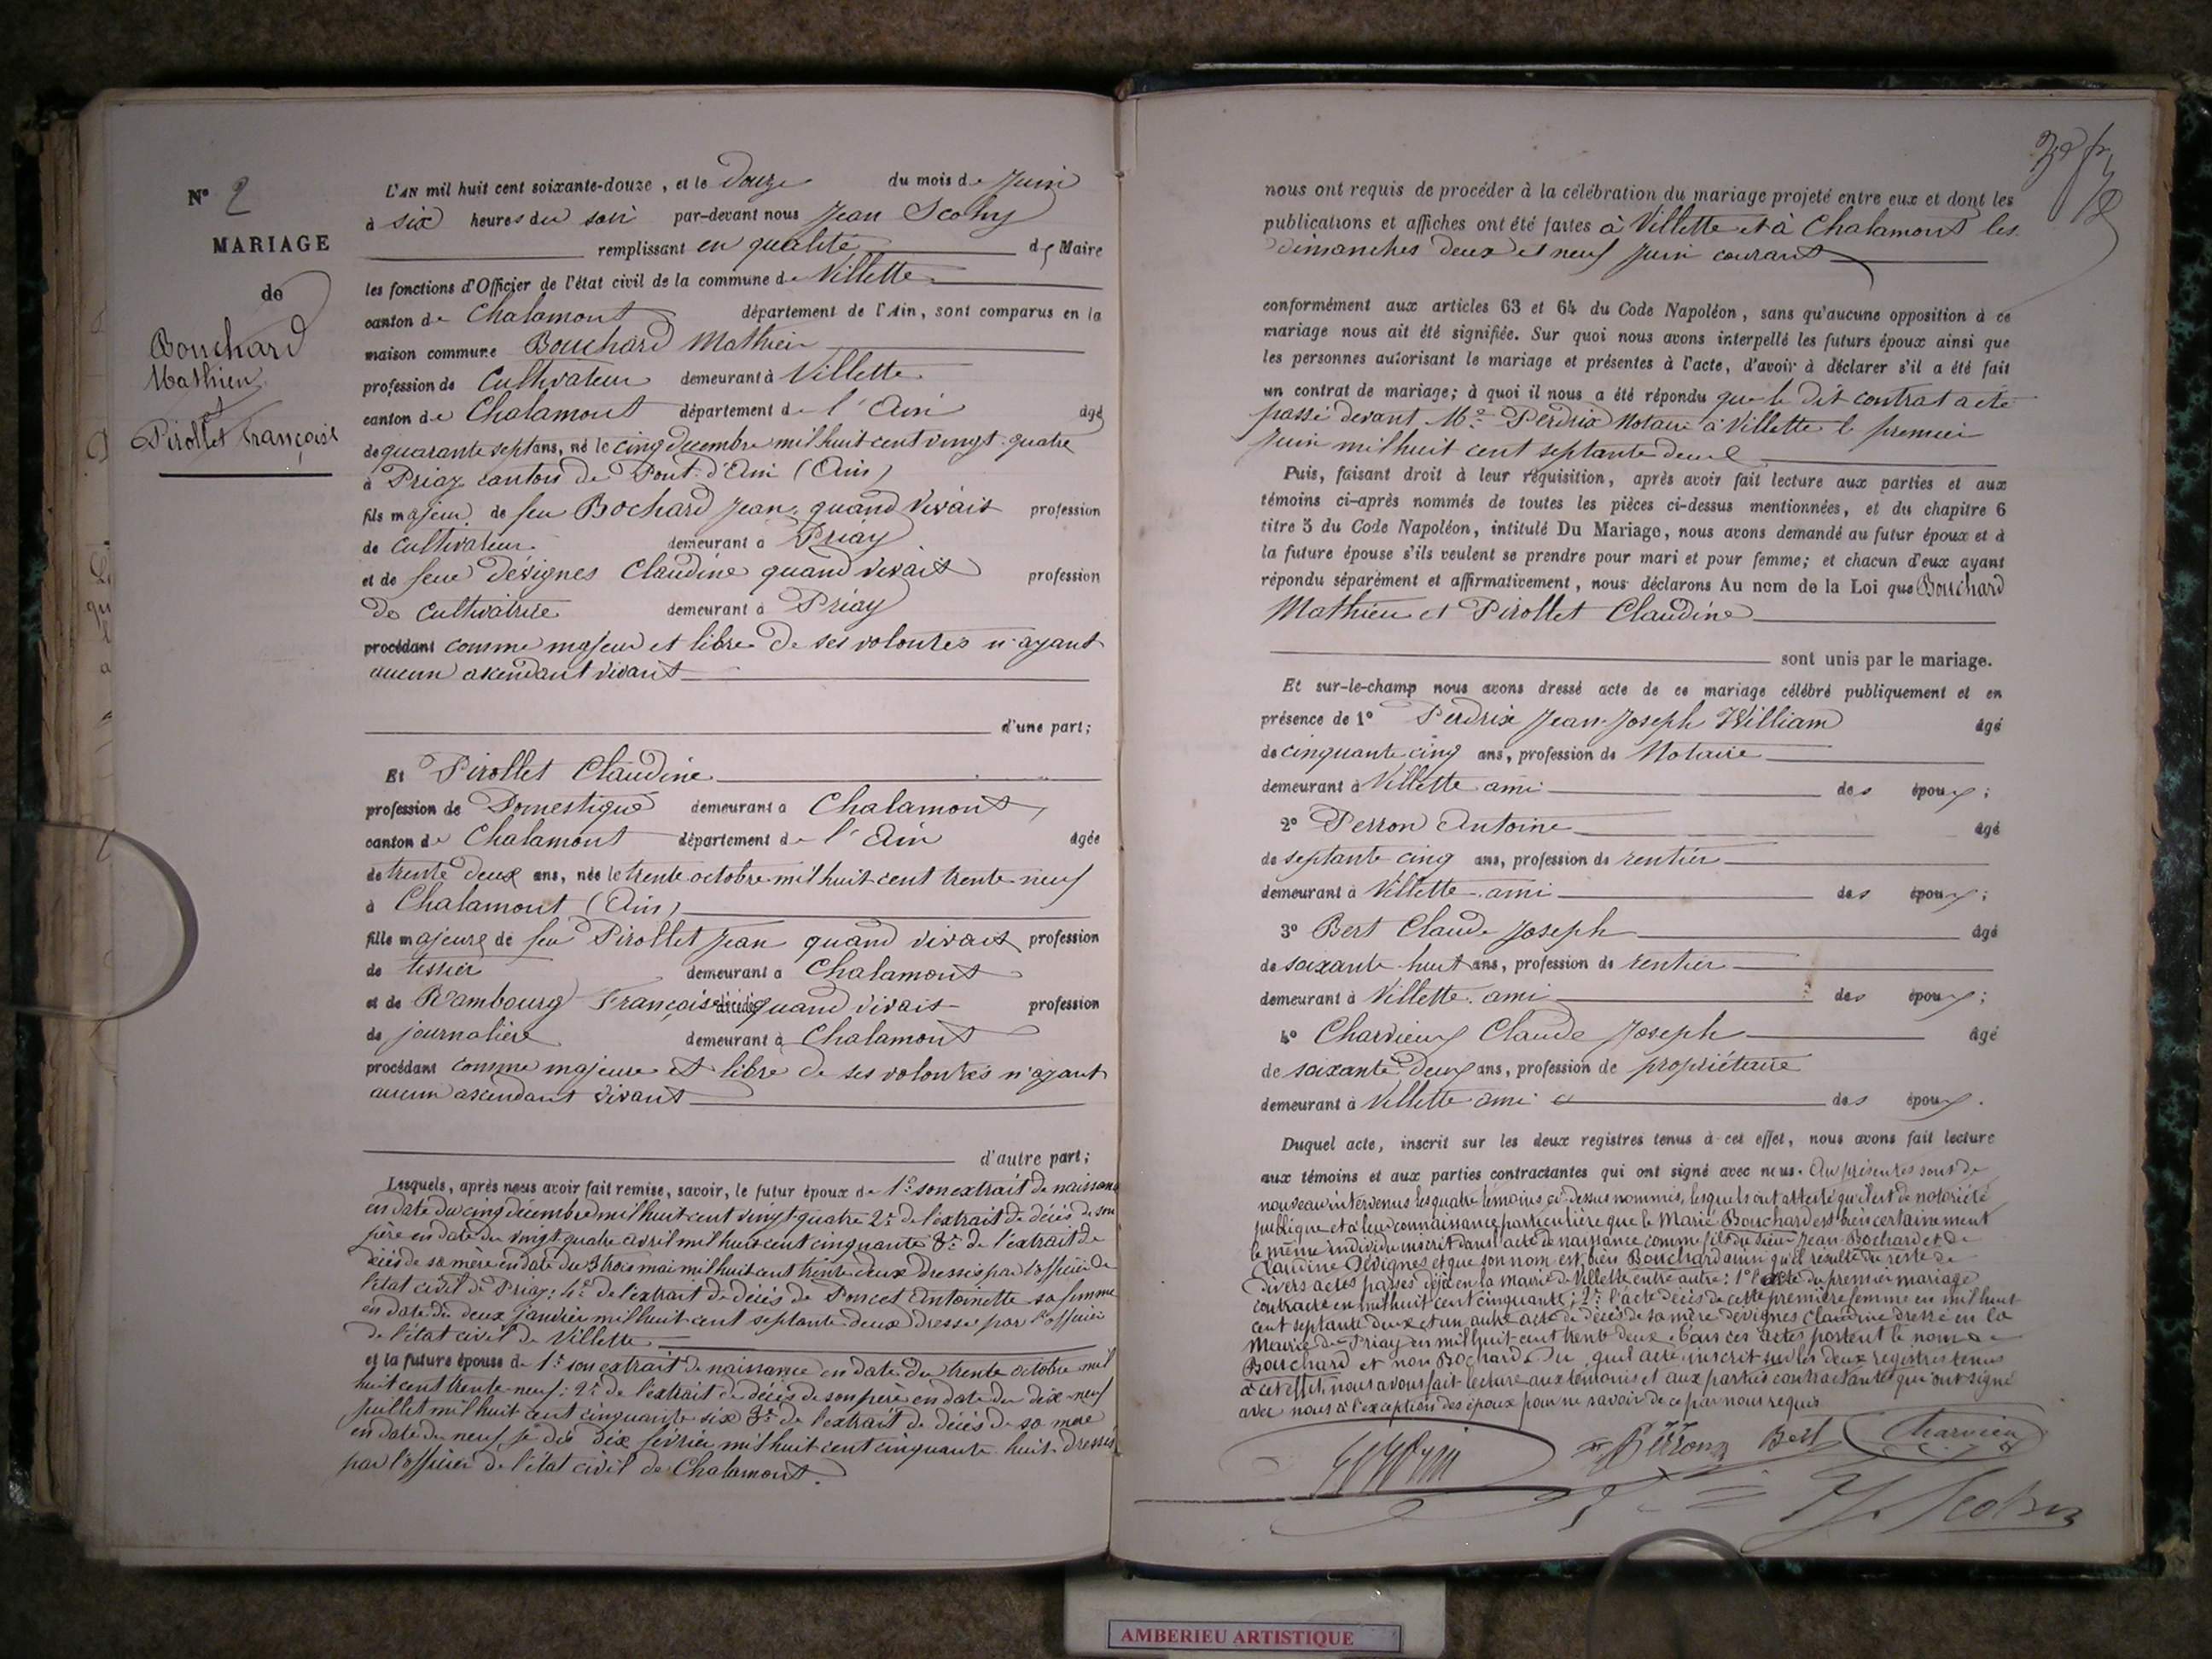 N° 2
MARIAGE
de
Bouchard
Mathieu
et
Pirollet Françoise
L'AN mil huit cent soixante-douze, et le Douze du mois de Juin
à six heures du soir par-devant nous Jean
remplissant en qualité de Maire
les fonctions d'Officier de l'état civil de la commune de Villette
canton de Chalamont département de l'Ain, sont comparus en la
maison commune Bouchard Mathieu
profession de Cultivateur demeurant à Villette
canton de Chalamont département de l'Ain âgé
de quarante sept ans, né le cinq decembre mil huit cent vingt-quatre
à Priay canton de Pont-d'Ain (Ain)
fils majeur de feu Bochard Jean, quand vivait profession
de Cultivateur demeurant à Priay
et de feue Devignes Claudine quand vivait profession
de Cultivatrice demeurant à Priay
procédant comme majeur et libre de ses volontés n'ayant
aucun ascendant vivant
d'une part;
Et Pirollet Claudine
profession de Domestique demeurant à Chalamont,
canton de Chalamont département de l'Ain âgée
de trente deux ans, née le trente octobre mil huit cent trente neuf
à Chalamont (Ain)
fille majeure de feu Pirollet Jean quand vivait profession
de tissier demeurant à Chalamont
et de Rambourg Françoise décédée quand vivait profession
de journalière demeurant à Chalamont
procédant comme majeure et libre de ses volontés n'ayant
aucun ascendant vivant
d'autre part;
Lesquels, après nous avoir fait remise, savoir, le futur époux de 1° son extrait de naissance
en date du cinq décembre mil huit cent vingt-quatre 2° de l'extrait de décès de son
père en date du vingt quatre avril mil huit cent cinquante 3° de l'extrait de
décès de sa mère en date du 3 trois mai mil huit cent trente deux dressés par l'officier de
l'état civil de Priay; 4° de l'extrait de décès de Poncet Antoinette sa femme
en date du deux janvier mil huit cent septante deux dressé par l'officier
de l'état civil de Villette
et la future épouse de 1° son extrait de naissance en date du trente octobre mil
huit cent trente-neuf: 2° de l'extrait de décès de son père en date du dix-neuf
juillet mil huit cent cinquante six 3° de l'extrait de décès de sa mère
en date du neuf je dis dix février mil huit cent cinquante huit dressés
par l'officier de l'état civil de Chalamont.
nous ont requis de procéder à la célébration du mariage projeté entre eux et dont les
publications et affiches ont été faites à Villette et à Chalamont les
dimanches deux et neuf Juin courant
conformément aux articles 63 et 64 du Code Napoléon, sans qu'aucune opposition à ce
mariage nous ait été signifiée. Sur quoi nous avons interpellé les futurs époux ainsi que
les personnes autorisant le mariage et présentes à l'acte, d'avoir à déclarer s'il a été fait
un contrat de mariage; à quoi il nous a été répondu que le dit contrat a été
passé devant Me Perdrix Notaire à Villette le premier
Juin mil huit cent septante deux
Puis, faisant droit à leur réquisition, après avoir fait lecture aux parties et aux
témoins ci-après nommés de toutes les pièces ci-dessus mentionnées, et du chapitre 6
titre 5 du Code Napoléon, intitulé Du Mariage, nous avons demandé au futur époux et à
la future épouse s'ils veulent se prendre pour mari et pour femme; et chacun d'eux ayant
répondu séparément et affirmativement, nous déclarons Au nom de la Loi que Bouchard
Mathieu et Pirollet Claudine
sont unis par le mariage.
Et sur-le-champ nous avons dressé acte de ce mariage célébré publiquement et en
présence de 1° Perdrix Jean-Joseph William âgé
de cinquante cinq ans, profession de Notaire
demeurant à Villette ami des époux;
2° Perron Antoine âgé
de septante cinq ans, profession de rentier
demeurant à Villette ami des époux;
3° Bert Claude Joseph âgé
de soixante-huit ans, profession de rentier
demeurant à Villette ami des époux;
4° Charvieux Claude Joseph âgé
de soixante Deux ans, profession de propriétaire
demeurant à Villette ami des époux.
Duquel acte, inscrit sur les deux registres tenus à cet effet, nous avons fait lecture
aux témoins et aux parties contractantes qui ont signé avec nous. Au présentes sont de
nouveau intervenus les quatre témoins ci-dessus nommés, lesquels ont attesté qu'il est de notoriété
publique et à leur connaissance particulière que le Marié Bouchard est bien certainement
le même individu inscrit dans acte de naissance comme fils du sieur Jean Bochard et de
Claudine Devignes et que son nom est bien Bouchard ainsi qu'il résulte du reste de
divers actes passés déjà en la Mairie de Villette entre autre: 1° l'acte du premier mariage
contracté en mil huit cent cinquante; 2° l'acte décès de cette première femme en mil huit
cent septante deux et un autre acte de décès de sa mère Devignes Claudine dressé en la
Mairie de Priay en mil huit cent trente deux. Tous ces actes portent le nom de
Bouchard et non Bochard. Du quel acte inscrit sur les deux registres tenus
à cet effet, nous avons fait lecture aux témoins et aux parties contractantes qui ont signé
avec nous à l'exception des époux pour ne savoir de ce par nous requis
Perron Bert Charvieux
AMBERIEU ARTISTIQUE